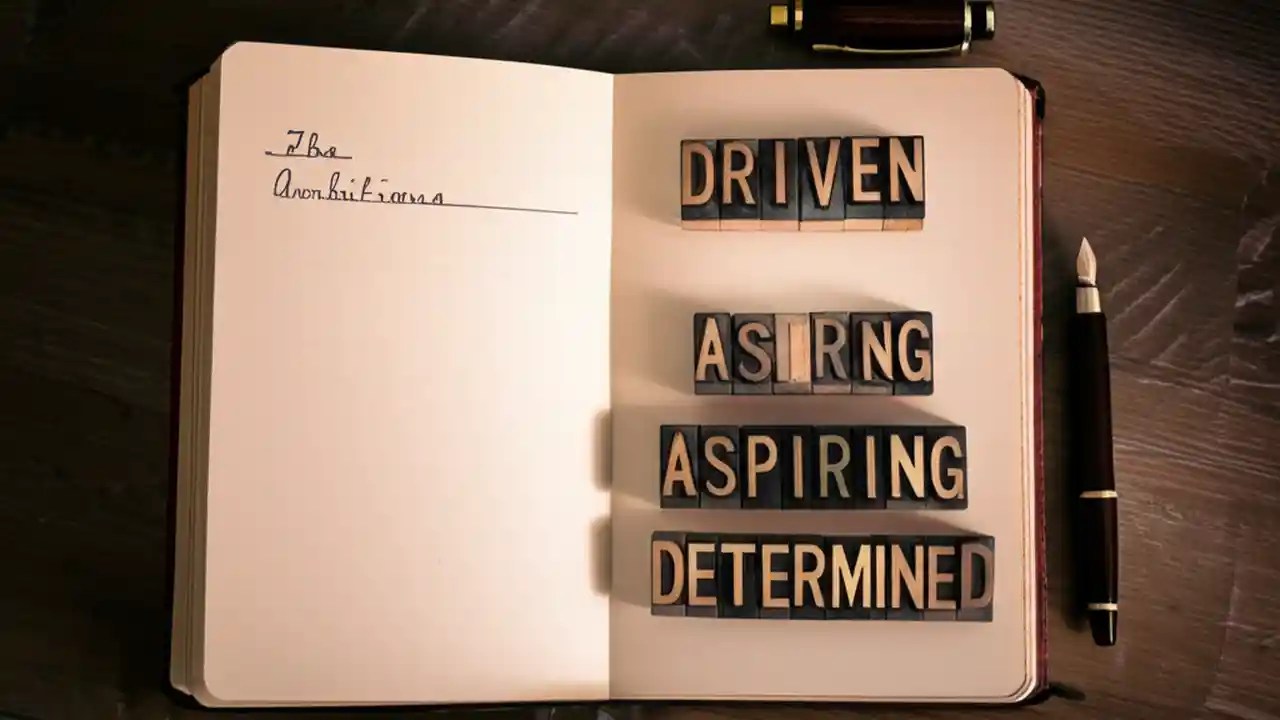 The
DRIVEN
ASIRNG
ASPIRING
DETERMINED